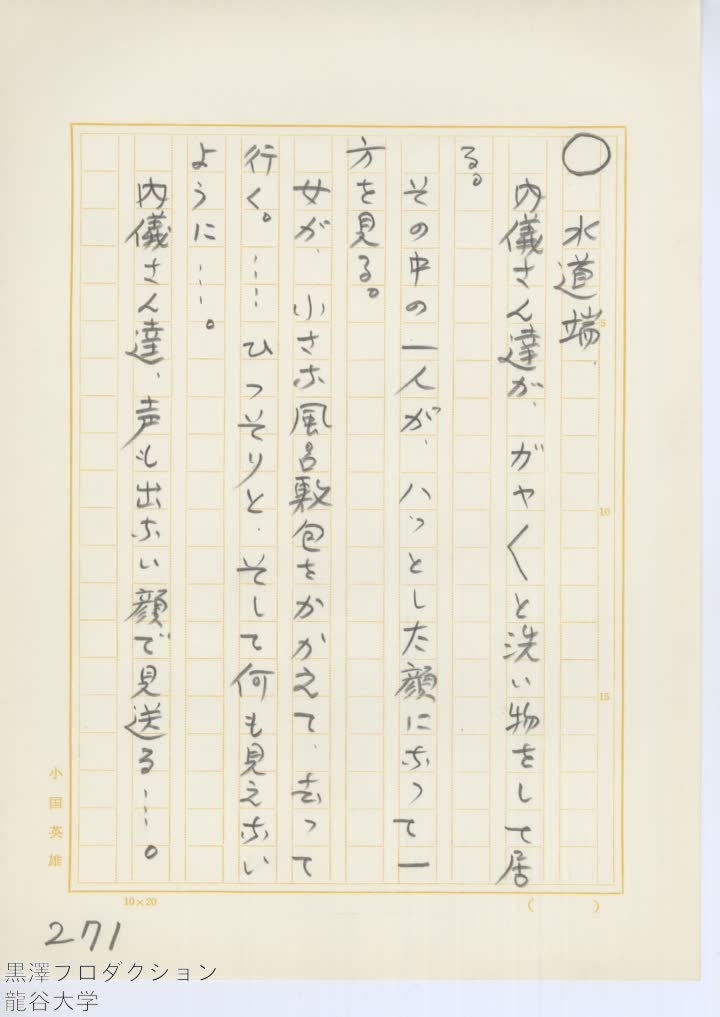 ○ 水道端、
内儀さん達が、ガヤ〱と洗い物をして居
る。
その中の一人が、ハッとした顔になって一
方を見る。
女が、小さな風呂敷包をかかえて、去って
行く。……ひっそりと、そして何も見えない
ように……。
内儀さん達、声も出ない顔で見送る……。
5
10
15
小国英雄
10×20
(　　)
271
黒澤プロダクション
龍谷大学